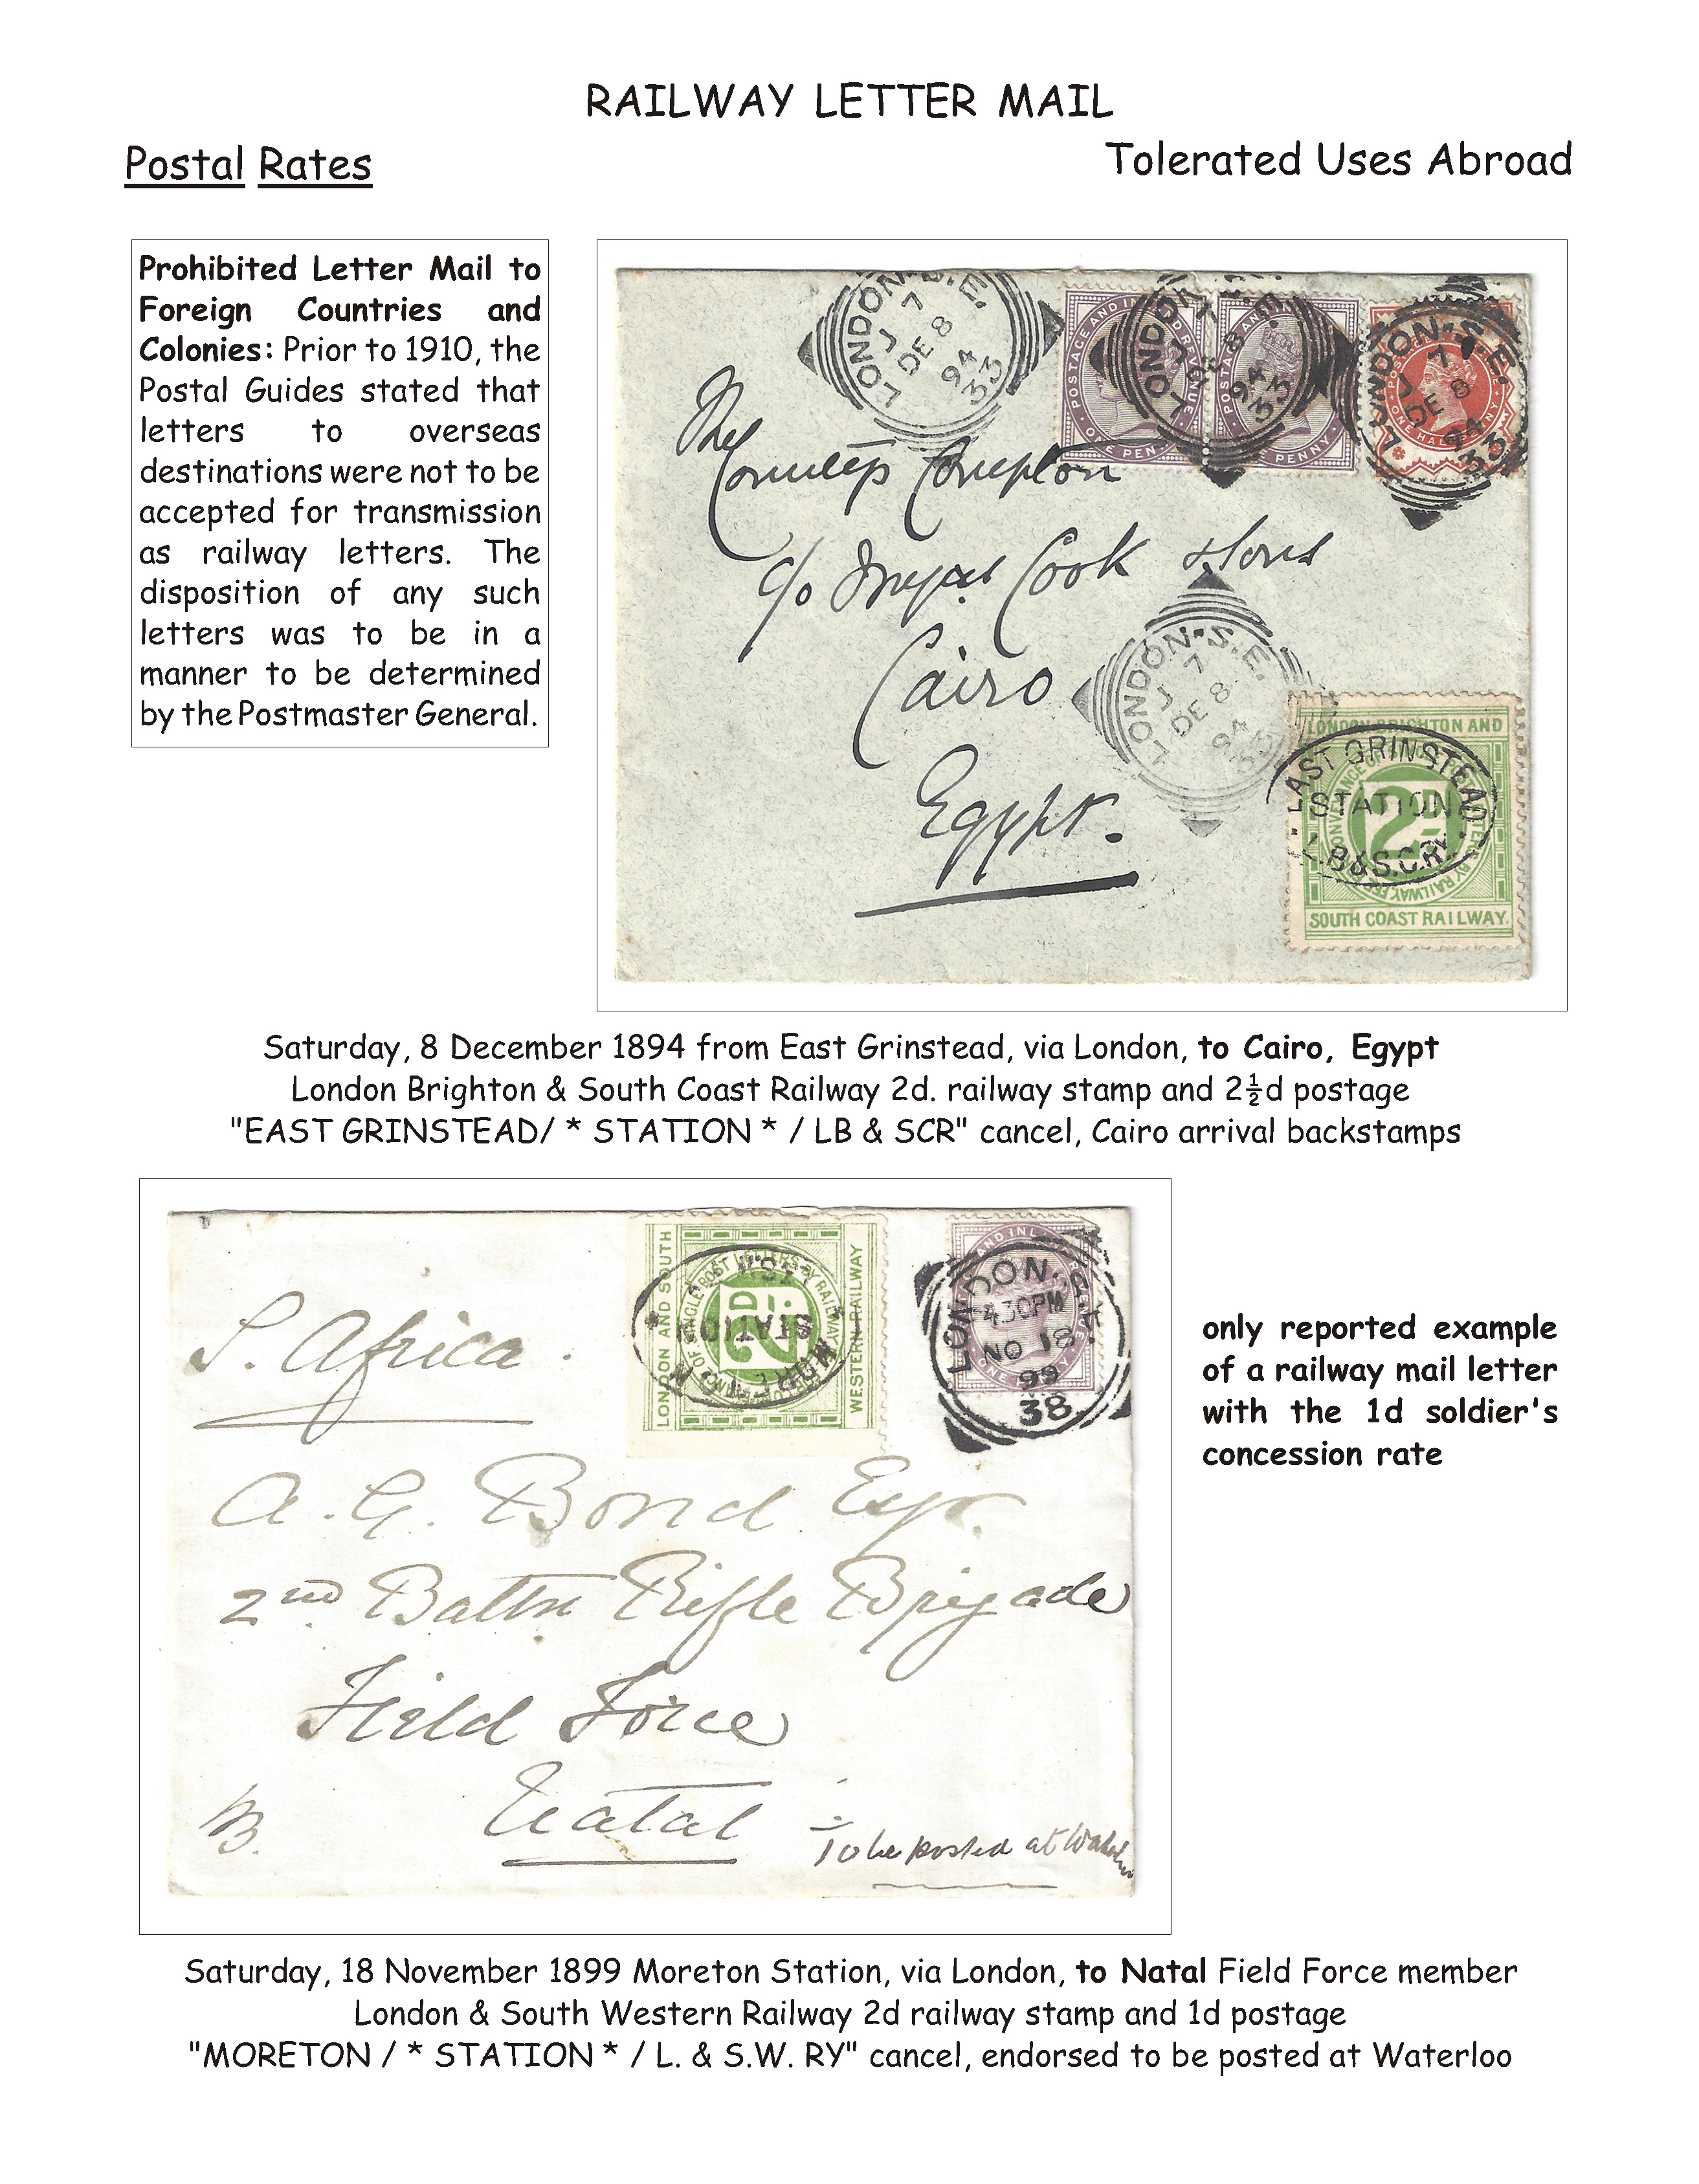 RAILWAY LETTER MAIL
Postal Rates
Tolerated Uses Abroad
Prohibited Letter Mail to
Foreign Countries and
Colonies: Prior to 1910, the
Postal Guides stated that
letters to overseas
destinations were not to be
accepted for transmission
as railway letters. The
disposition of any such
letters was to be in a
manner to be determined
by the Postmaster General.
LONDON. S.E.
J 7
DE 8
94
33
POSTAGE AND INLAND REVENUE
ONE PENNY
LONDON. S.E.
J 7
DE 8
94
33
POSTAGE AND
PENNY
LONDON. S.E.
J 7
DE 8
94
33
ONE HALFPENNY
The
Countess Compton
c/o Messrs Cook & Sons
Cairo
Egypt.
LONDON. S.E.
J 7
DE 8
94
LONDON BRIGHTON AND
EAST GRINSTEAD
STATION
L.B.&S.C.RY.
2D
SOUTH COAST RAILWAY.
Saturday, 8 December 1894 from East Grinstead, via London, to Cairo, Egypt
London Brighton & South Coast Railway 2d. railway stamp and 2½d postage
"EAST GRINSTEAD/ * STATION * / LB & SCR" cancel, Cairo arrival backstamps
LONDON AND SOUTH
WESTERN RAILWAY
OF SINGLE POST LETTERS BY RAILWAY
2D
MORETON
STATION
LONDON. S.E.
4.30PM
NO 18
99
38
S. Africa
A. G. Bond Esqr.
2nd Battn Rifle Brigade
Field Force
Natal
B.
To be posted at Waterloo
only reported example
of a railway mail letter
with the 1d soldier's
concession rate
Saturday, 18 November 1899 Moreton Station, via London, to Natal Field Force member
London & South Western Railway 2d railway stamp and 1d postage
"MORETON / * STATION * / L. & S.W. RY" cancel, endorsed to be posted at Waterloo